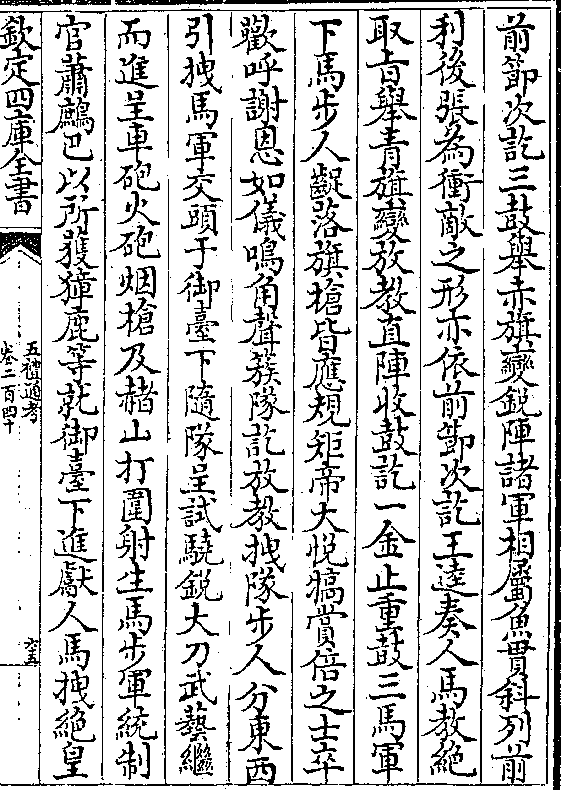 前節次訖三鼓舉赤旗變鋭陣諸軍相屬魚貫斜列前
利後張為衝敵之形亦依前節次訖王逵奏人馬教絶
取旨舉青旗變放教直陣收鼓訖一金止重鼓三馬軍
下馬步人齪落旗槍皆應規矩帝大悦犒賞倍之士卒
歡呼謝恩如儀鳴角聲簇隊訖放教拽隊步人分東西
引拽馬軍交頭于御臺下隨隊呈試驍鋭大刀武藝繼
而進呈車砲火砲烟槍及赭山打圍射生馬步軍統制
官蕭鷓巴以所獲獐鹿等就御臺下進獻人馬拽絶皇
欽定四庫全書
五禮通考
卷二百四十
六五